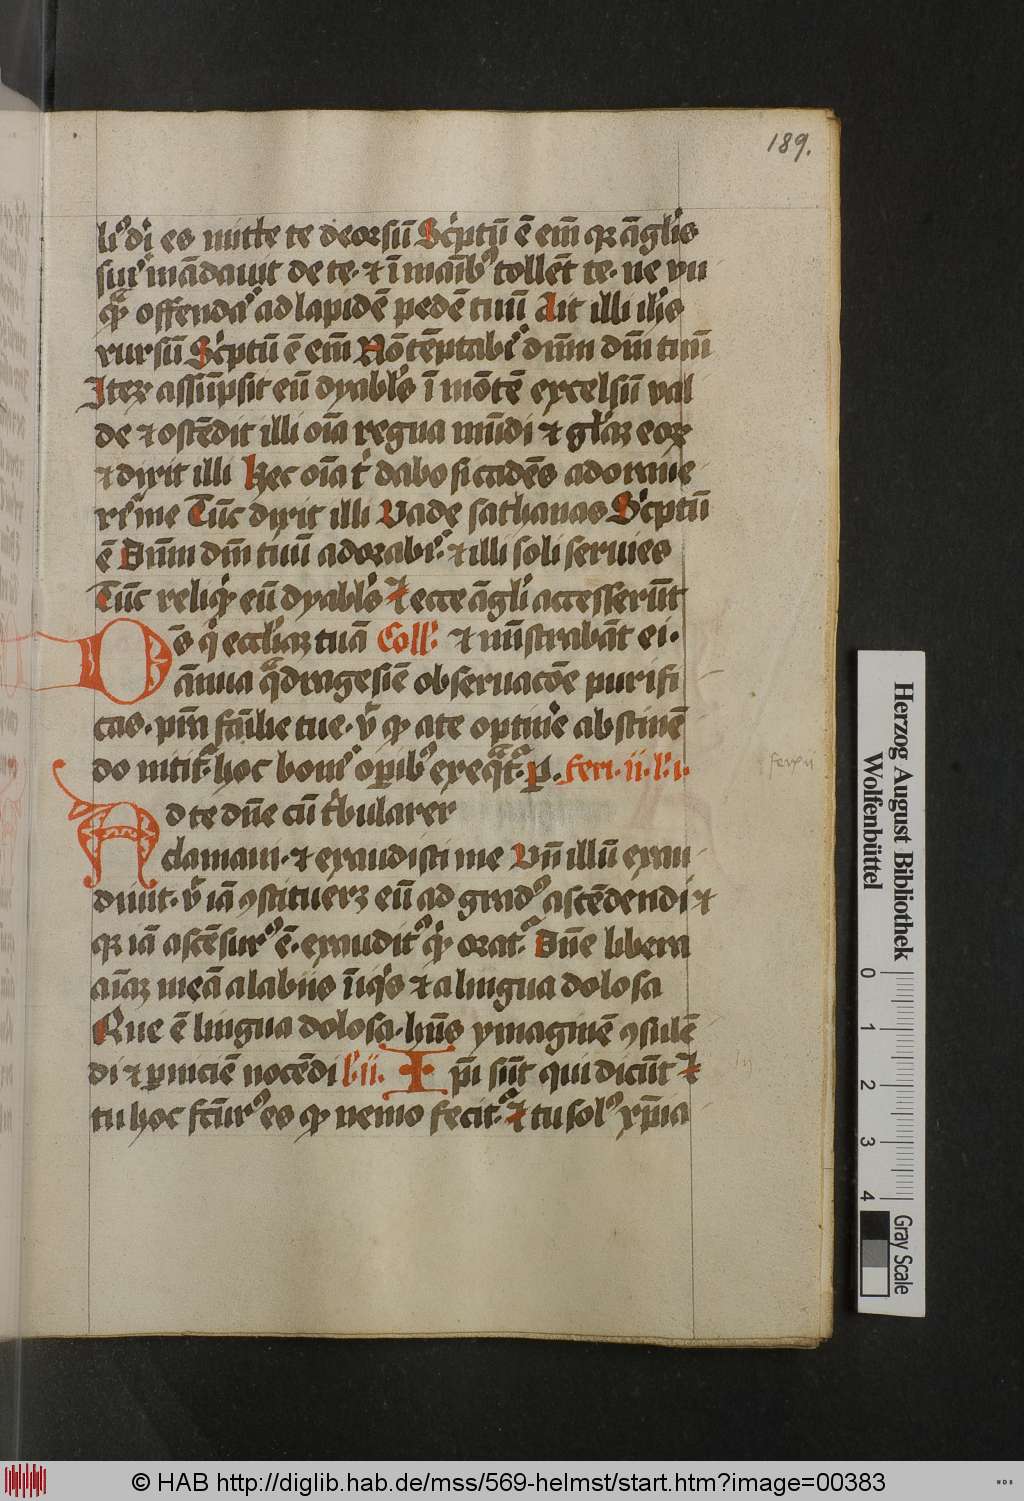 189.
liꝰ dī es mitte te deorsū Scͥptū ē em̄ qꝛ āgłis
suis mādauit de te · ⁊ ī maībꝰ tollēt te · ne vn
qͣꝫ offendaͥs ad lapidē pedē tuū Ait illi ihͨs
rursū Scͥptū ē em̄ Nō tēptabͥ dn̄m dm̄ tuū
Iteꝝ assūpsit eū dyablꝰs ī mōtē excelsū val
de ⁊ ostēdit illi oīa regna mūdi ⁊ głaꝫ eoꝝ
⁊ dixit illi Hec oīa tͥ dabo si cadēs adoraue
rͥs me Tūc dixit illi Vade sathanas Scͥptū
ē Dn̄m dm̄ tuū adorabͥs · ⁊ illi soli seruies
Tūc reliqͥt eū dyablꝰs ⁊ ecce āgłi accesserūt
Ds̄ qͥ eccłiaꝫ tuā Coll̄ · ⁊ mīstrabāt ei ·
ānua qͣdragesīe obseruacōe purifi
cas · pm̄ fāilie tue · vͭ qꝫ a te optinͥe abstinē
do nititͬ · hoc bonͥs opībꝰ exeqͣtͬ · p̱ . feri · ii · l̄ · i ·
Ad te dn̄e cū tͥbularer
clamaui · ⁊ exaudisti me Vn̄ illū exau
diuit · vͭ iā ꝯstitueꝝ eū ad gradꝰ ascēdendi ⁊
qꝛ iā ascēsurꝰ ē · exauditꝰ qͥ orat · Dn̄e libera
aīaꝫ meā a labiis īiqͥs ⁊ a lingua dolosa
Que ē lingua dolosa · hn̄s ymaginē ꝯsulē
di ⁊ ꝑniciē nocēdi l̄ · ii · Ip̄i sūt qui dicūt ⁊
tu hoc fc̄urꝰ es qꝫ nemo fecit · ⁊ tu solꝰ xp̄ia
Herzog August Bibliothek
Wolfenbüttel
0 1 2 3 4
Gray Scale
© HAB http://diglib.hab.de/mss/569-helmst/start.htm?image=00383